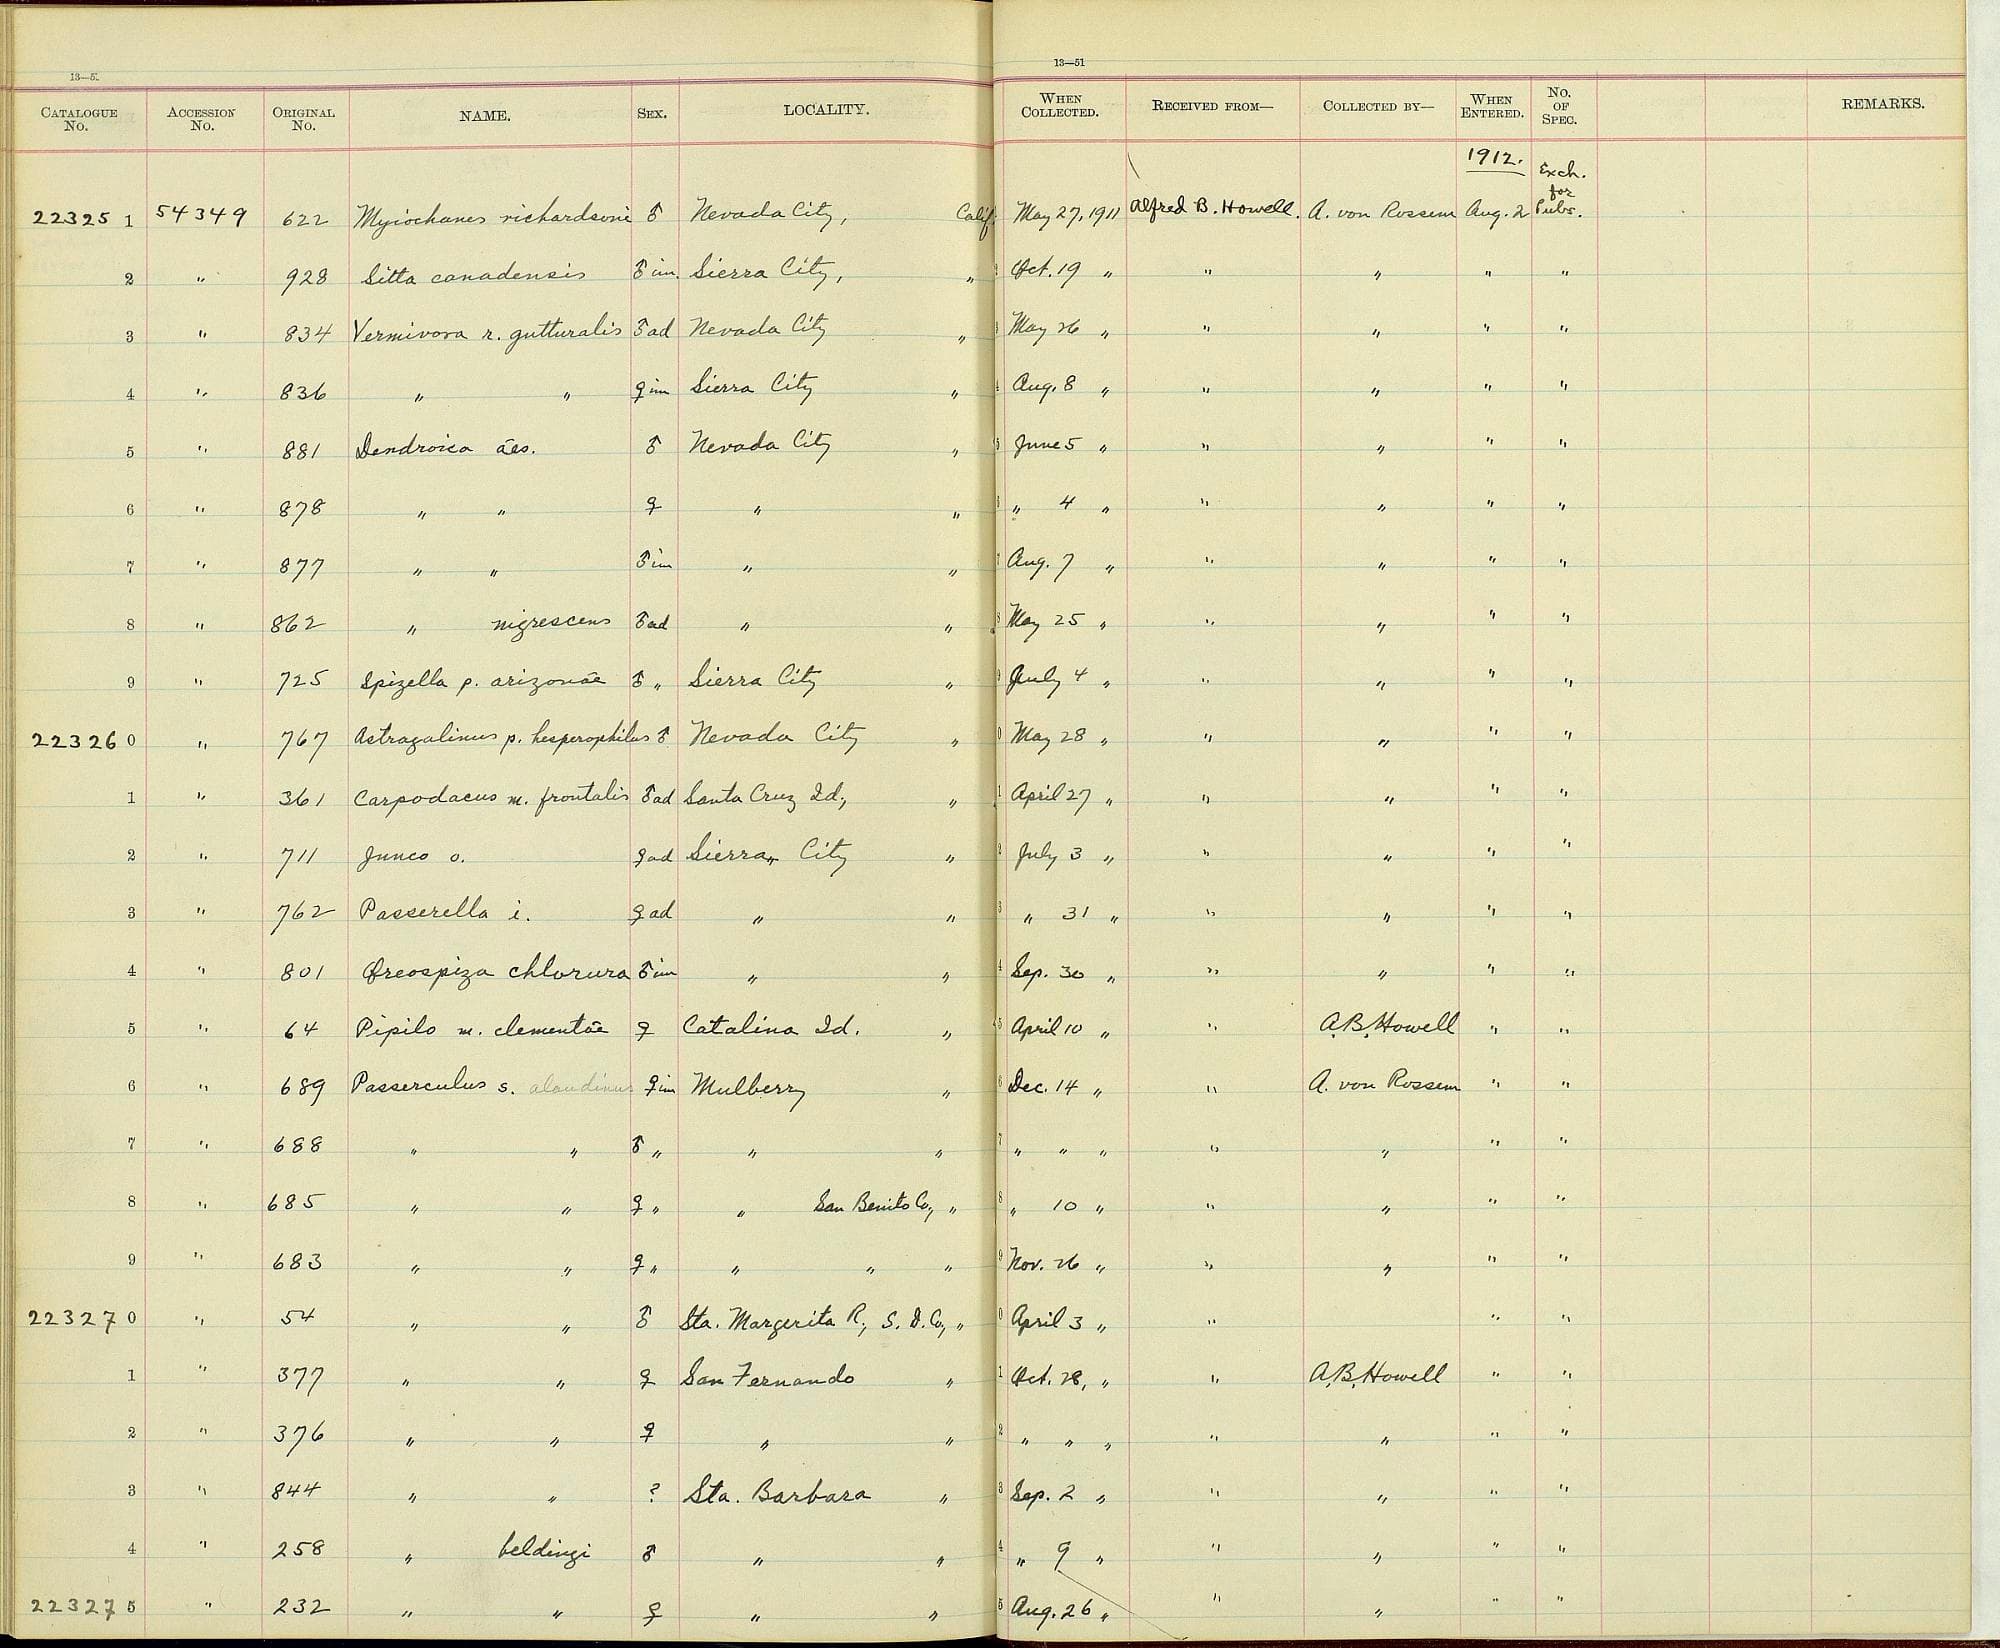 13—5 13—51
CATALOGUE No. ACCESSION No. ORIGINAL No. NAME. SEX. LOCALITY. WHEN COLLECTED. RECEIVED FROM— COLLECTED BY— WHEN ENTERED. NO. OF SPEC. REMARKS.
1912. Exch. for
22325 1 54349 622 Myiochanes richardsoni ♂ Nevada City, Calif. May 27, 1911 Alfred B. Howell. A. von Rossem Aug. 2 Pubs.
2 " 928 Sitta canadensis ♂ im. Sierra City, " 2 Oct. 19 " " " " "
3 " 834 Vermivora r. gutturalis ♂ ad Nevada City " 3 May 26 " " " " "
4 " 836 " " ♀ im Sierra City " 4 Aug. 8 " " " " "
5 " 881 Dendroica aes. ♂ Nevada City " 5 June 5 " " " " "
6 " 878 " " ♀ " " 6 " 4 " " " " "
7 " 877 " " ♂ im " " 7 Aug. 7 " " " " "
8 " 862 " nigrescens ♂ ad " " 8 May 25 " " " " "
9 " 725 Spizella p. arizonae ♂ " Sierra City " 9 July 4 " " " " "
22326 0 " 767 Astragalinus p. hesperophilus ♂ Nevada City " 0 May 28 " " " " "
1 " 361 Carpodacus m. frontalis ♂ ad Santa Cruz Id., " 1 April 27 " " " " "
2 " 711 Junco o. ♀ ad Sierra City " 2 July 3 " " " " "
3 " 762 Passerella i. ♀ ad " " 3 " 31 " " " " "
4 " 801 Oreospiza chlorura ♂ im " " 4 Sep. 30 " " " " "
5 " 64 Pipilo m. clementae ♀ Catalina Id. " 5 April 10 " " A. B. Howell " "
6 " 689 Passerculus s. alaudinus ♀ im Mulberry " 6 Dec. 14 " " A. von Rossem " "
7 " 688 " " ♂ " " " 7 " " " " " " "
8 " 685 " " ♀ " " San Benito Co., " 8 " 10 " " " " "
9 " 683 " " ♀ " " " " 9 Nov. 26 " " " " "
22327 0 " 54 " " ♂ Sta. Margerita R., S. D. Co., " 0 April 3 " " " "
1 " 377 " " ♀ San Fernando " 1 Oct. 28, " " A. B. Howell " "
2 " 376 " " ♀ " " 2 " " " " " " "
3 " 844 " " ? Sta. Barbara " 3 Sep. 2 " " " " "
4 " 258 " beldingi ♂ " " 4 " 9 " " " " "
22327 5 " 232 " " ♀ " " 5 Aug. 26 " " " " "